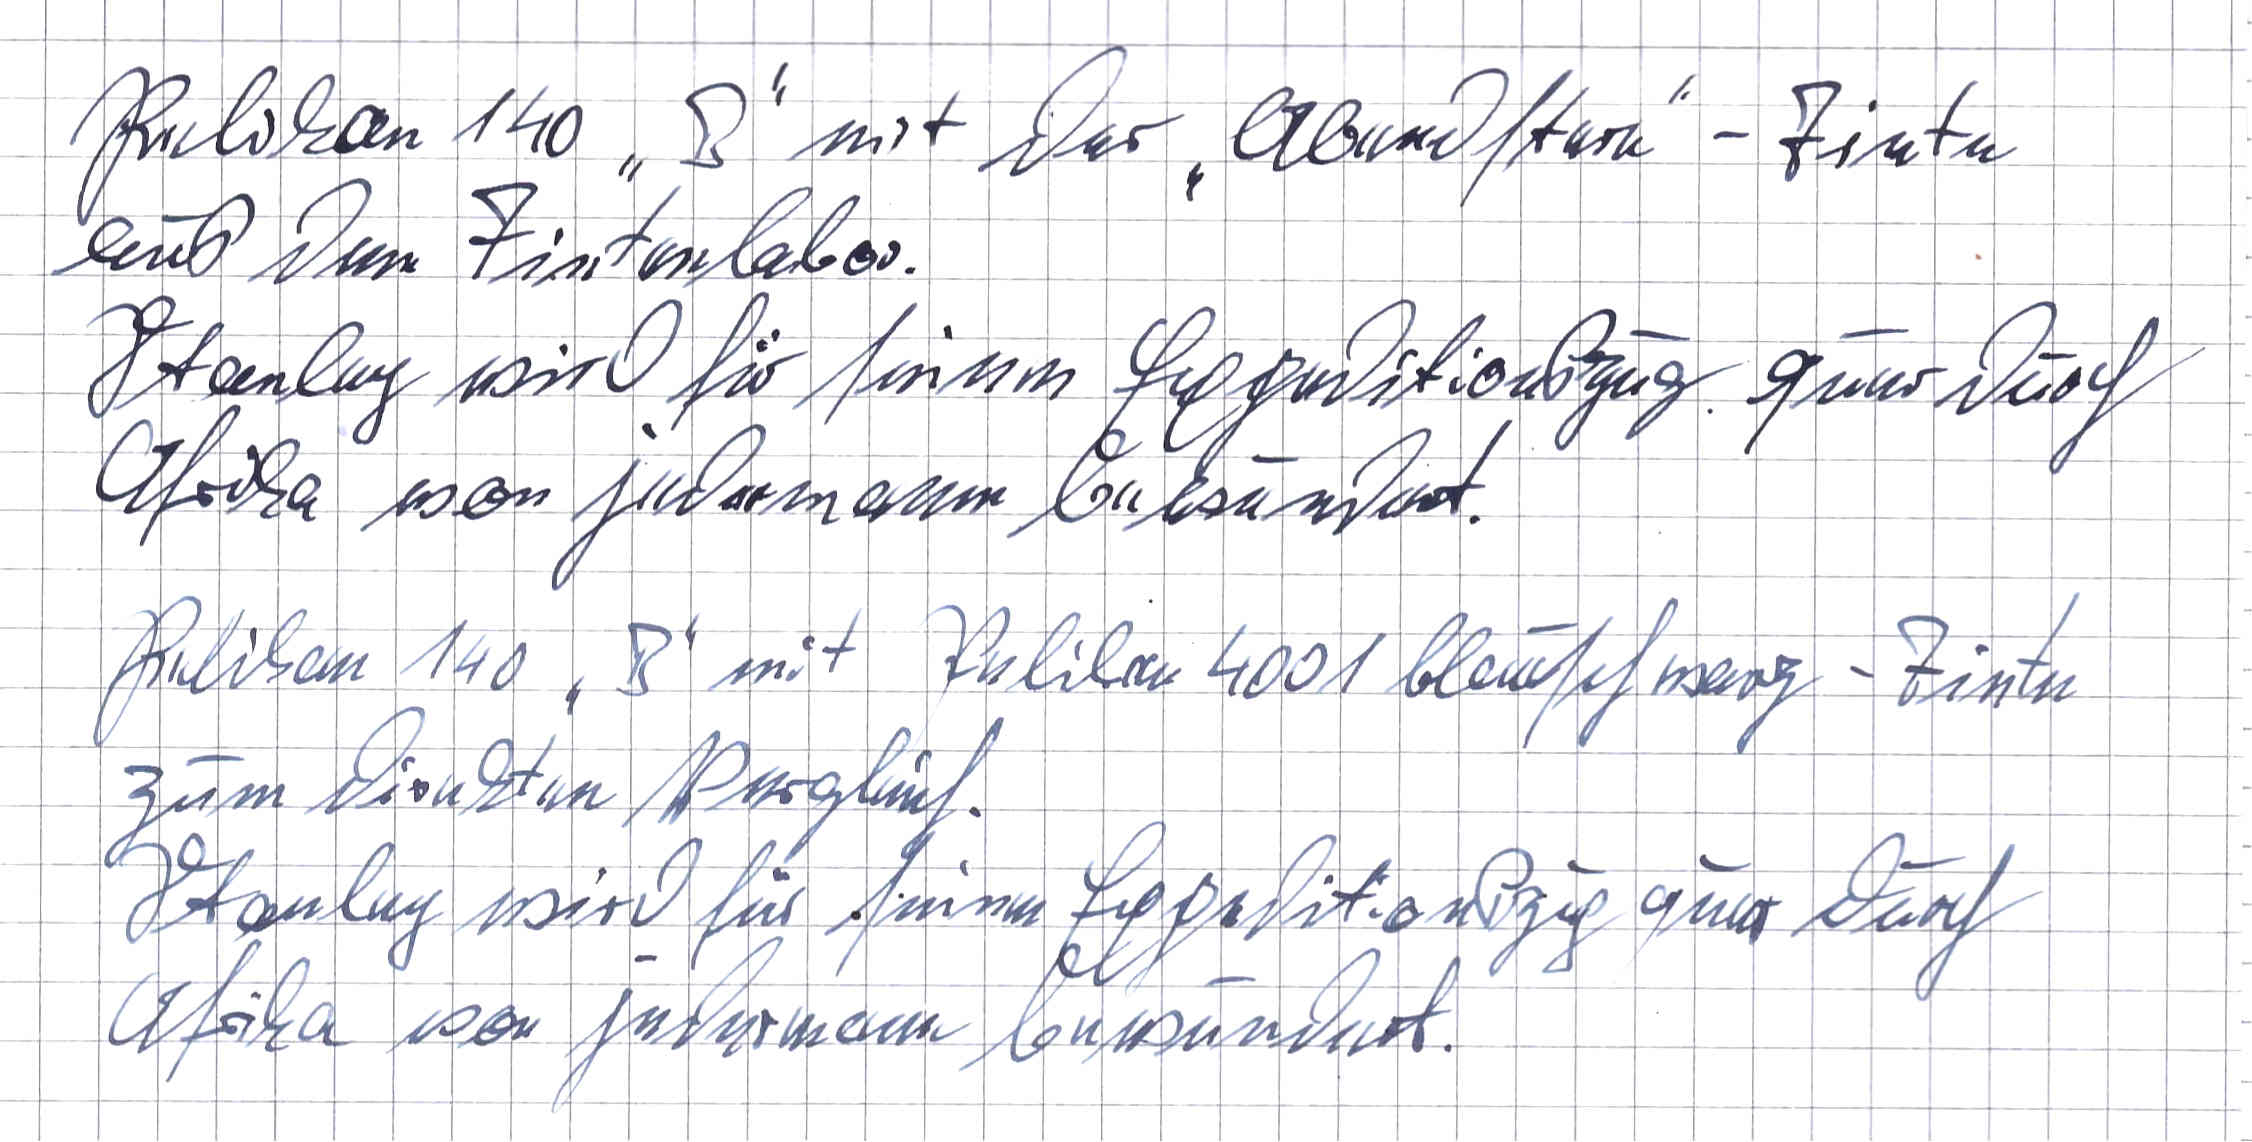 Pelikan 140 „B“ mit der „Abendstern“ - Tinte
aus dem Tintenlabor.
Stanley wird für seinen Expeditionszug quer durch
Afrika von jedermann bewundert.
Pelikan 140 „B“ mit Pelikan 4001 blauschwarz - Tinte
zum direkten Vergleich.
Stanley wird für seinen Expeditionszug quer durch
Afrika von jedermann bewundert.